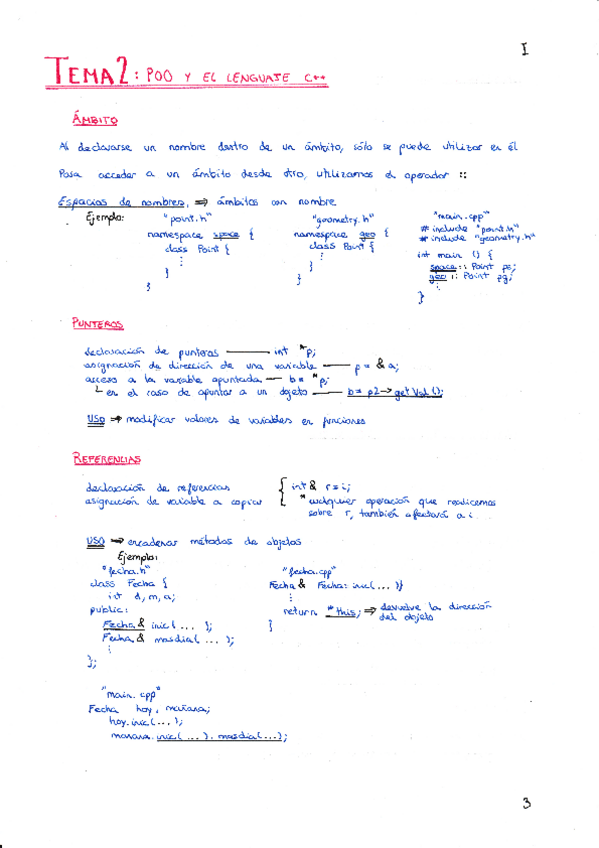 I
TEMA 2: POO Y EL LENGUAJE C++
ÁMBITO
Al declararse un nombre dentro de un ámbito, sólo se puede utilizar en él
Para acceder a un ámbito desde otro, utilizamos el operador ::
Espacios de nombres, ⇒ ámbitos con nombre
Ejemplo:
"point.h"
namespace space {
class Point {
⋮
}
}
"geometry.h"
namespace geo {
class Point {
⋮
}
}
"main.cpp"
# include "point.h"
# include "geometry.h"
int main () {
space :: Point ps;
geo :: Point pg;
⋮
}
PUNTEROS
declaración de punteros — int *p;
asignación de dirección de una variable — p = & a;
acceso a la variable apuntada — b = *p;
en el caso de apuntar a un objeto — b = p2->getVal();
USO ⇒ modificar valores de variables en funciones
REFERENCIAS
declaración de referencias { int & r = i;
asignación de variable a copiar * cualquier operación que realicemos
sobre r, también afectará a i
USO ⇒ encadenar métodos de objetos
Ejemplo:
"fecha.h"
class Fecha {
int d, m, a;
public:
Fecha & inic( ... );
Fecha & masdia( ... );
⋮
};
"fecha.cpp"
Fecha & Fecha: inic( ... ){
⋮
return *this; ⇒ devuelve la dirección
del objeto
}
"main.cpp"
Fecha hoy, mañana;
hoy.inic(...);
manana.inic( ... ). masdia( ...);
3